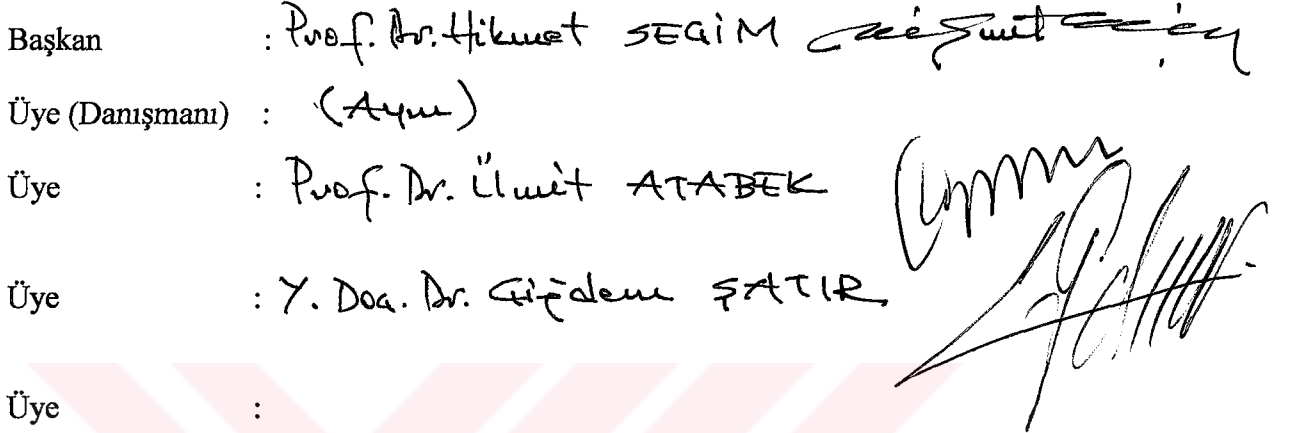 Başkan : Prof. Dr. Hikmet SEÇİM
Üye (Danışmanı) : (Aynı)
Üye : Prof. Dr. Ümit ATABEK
Üye : Y. Doç. Dr. Çiğdem ŞATIR
Üye :